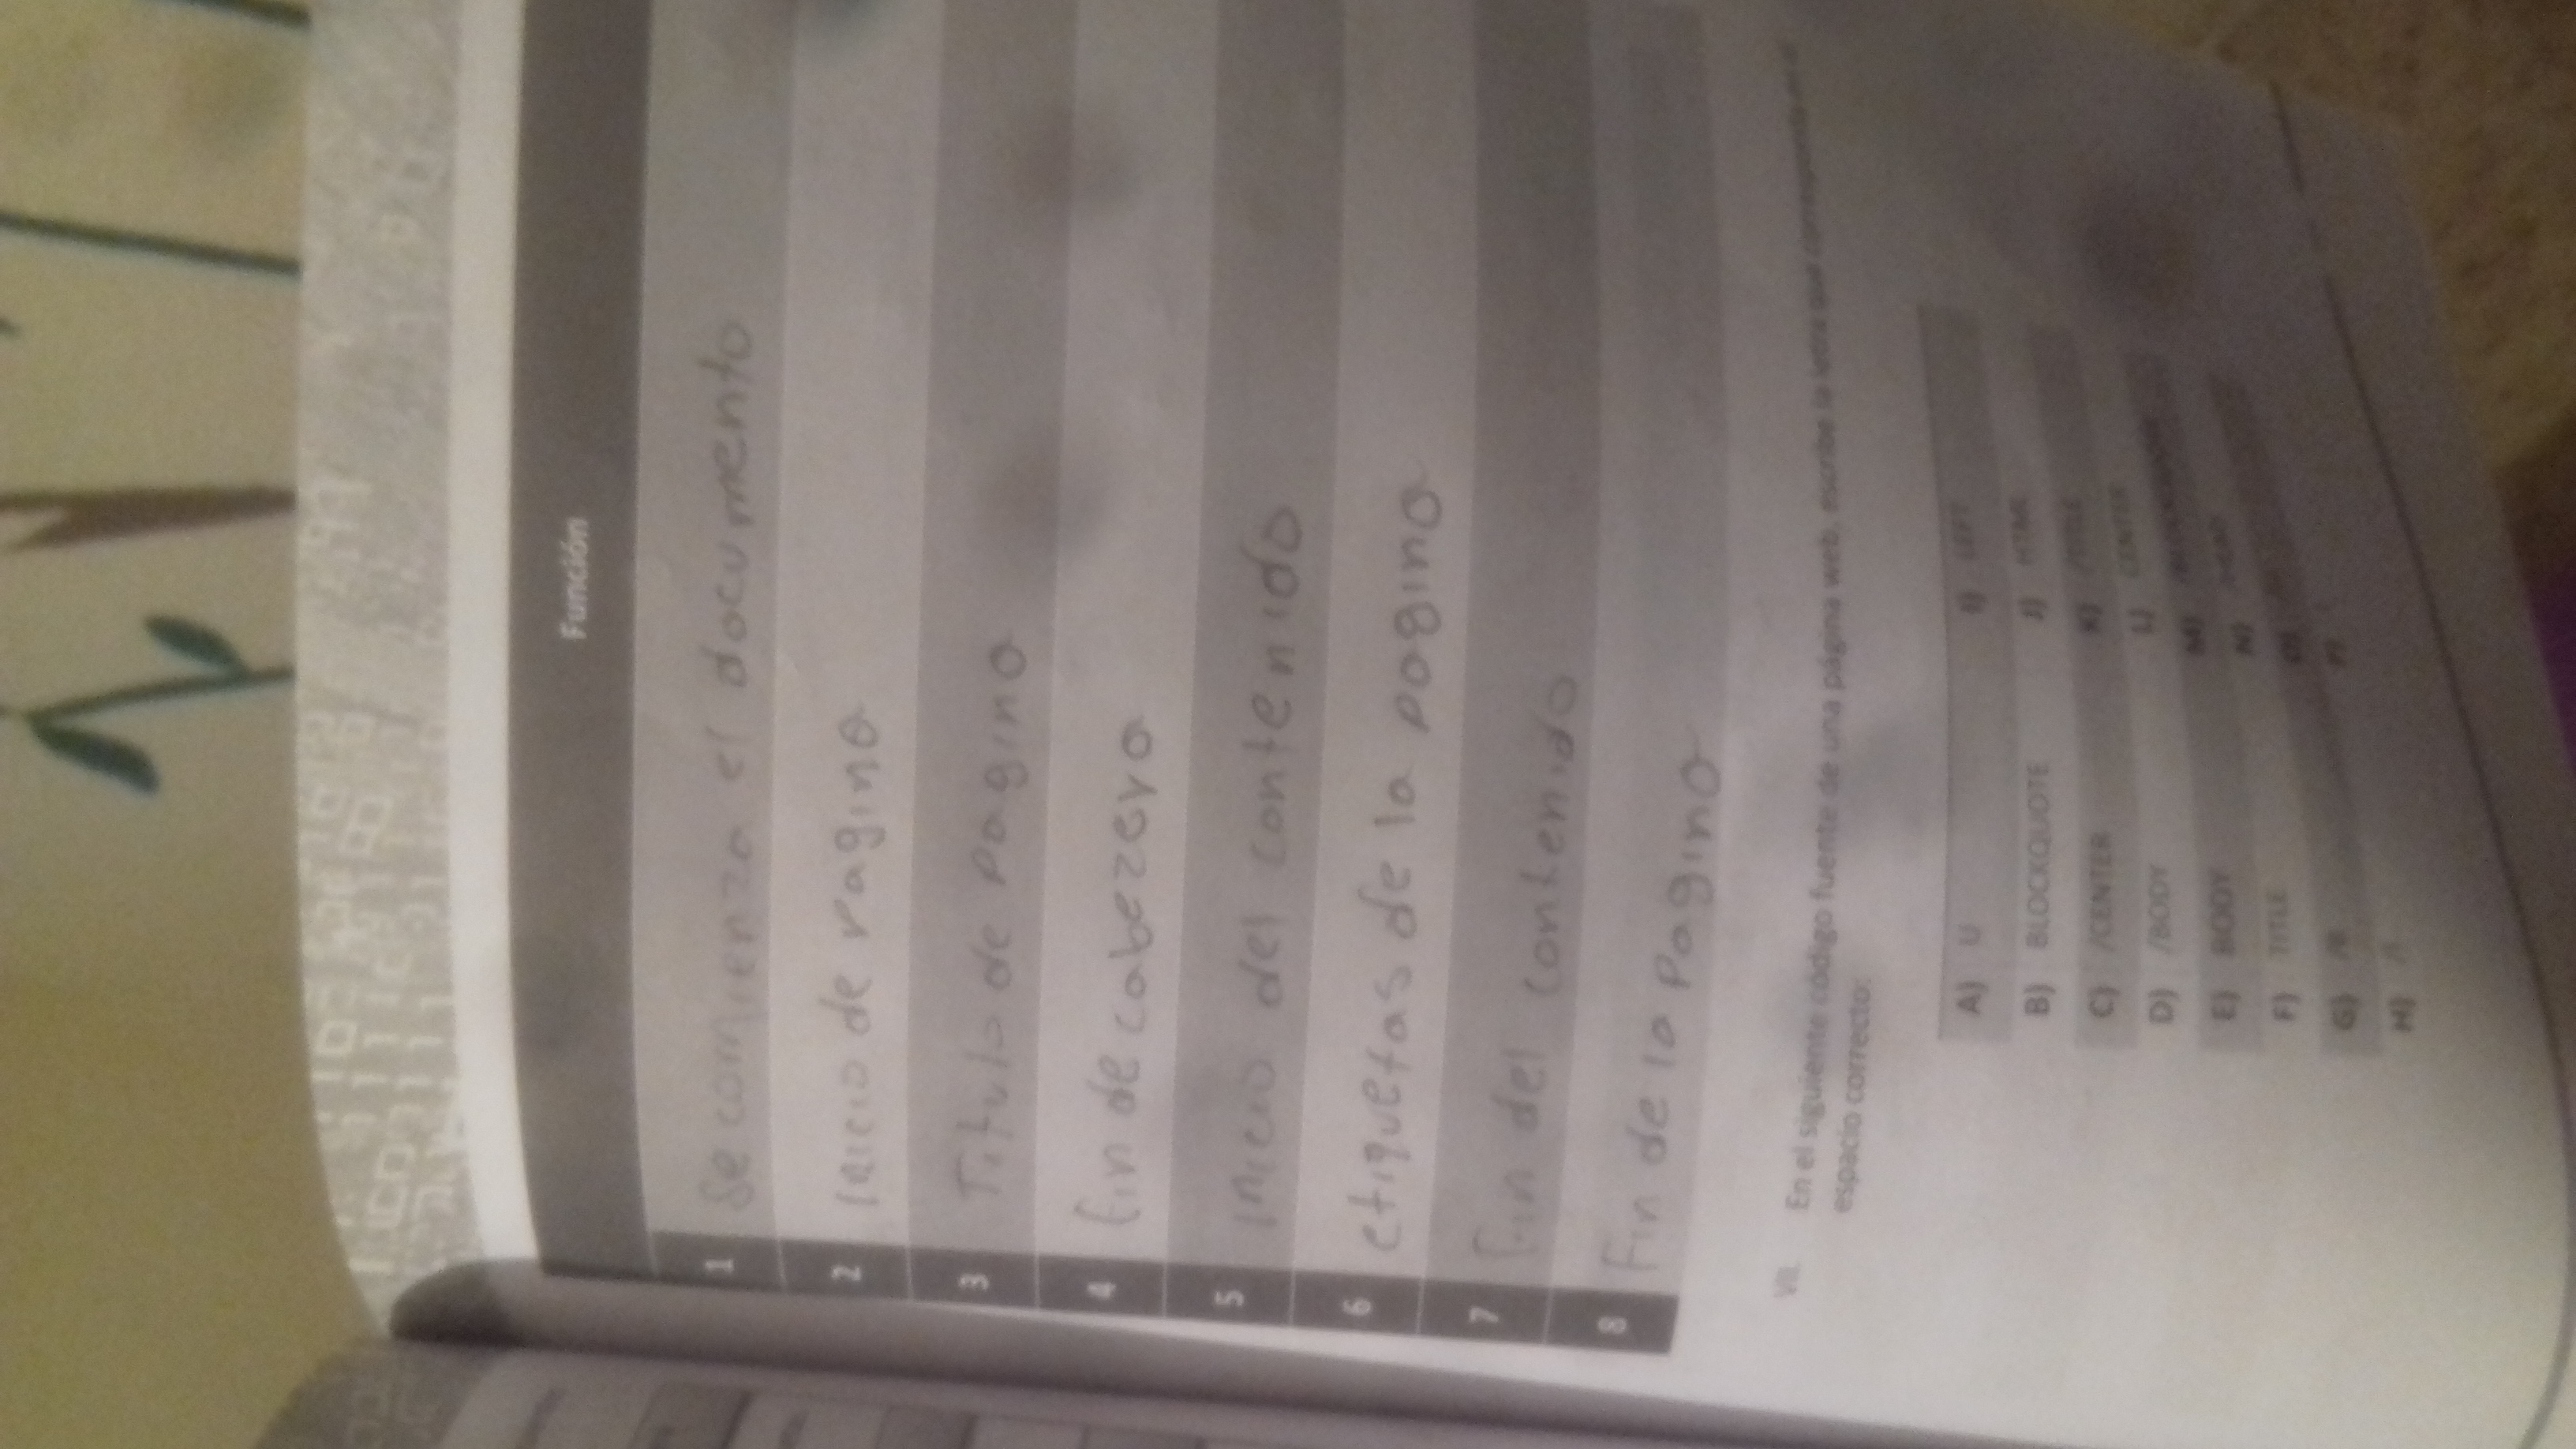 Función
1 Se comienza el documento
2 Inicio de pagina
3 Titulo de pagina
4 Fin de cabezera
5 inicio del contenido
6 etiquetas de la pagina
7 Fin del contenido
8 Fin de la pagina
VII. En el siguiente código fuente de una página web, escribe la letra que corresponda en el
espacio correcto:
A) U I) LEFT
B) BLOCKQUOTE J) HTML
C) /CENTER K) /TITLE
D) /BODY L) CENTER
E) BODY M) /BLOCKQUOTE
F) TITLE N) /HEAD
G)
H)